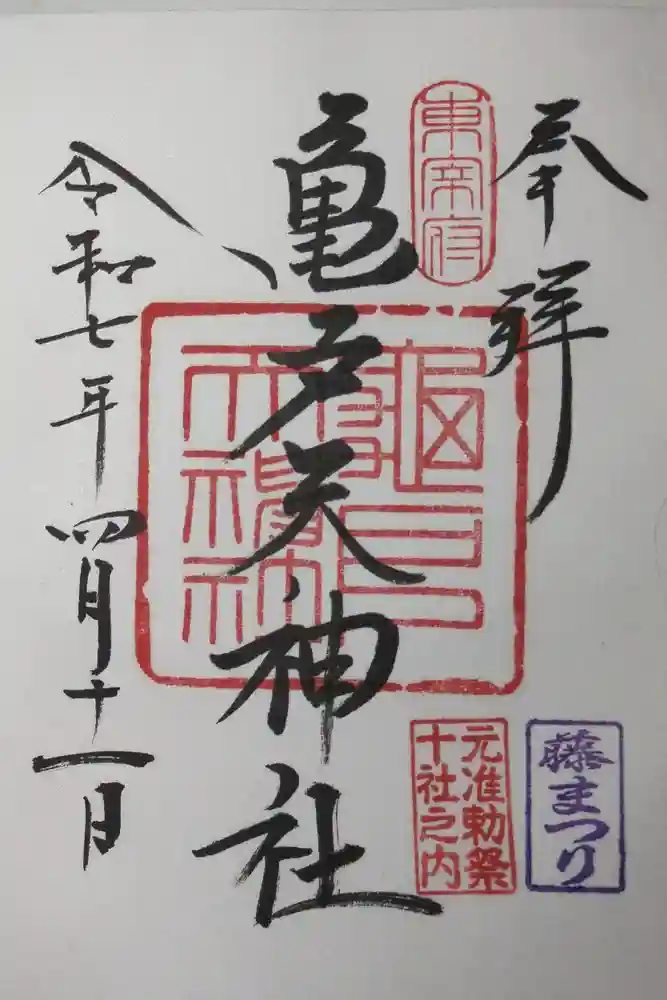 奉拝
東宰府
亀戸天神社
令和七年四月十一日
元准勅祭
十社之内
藤まつり